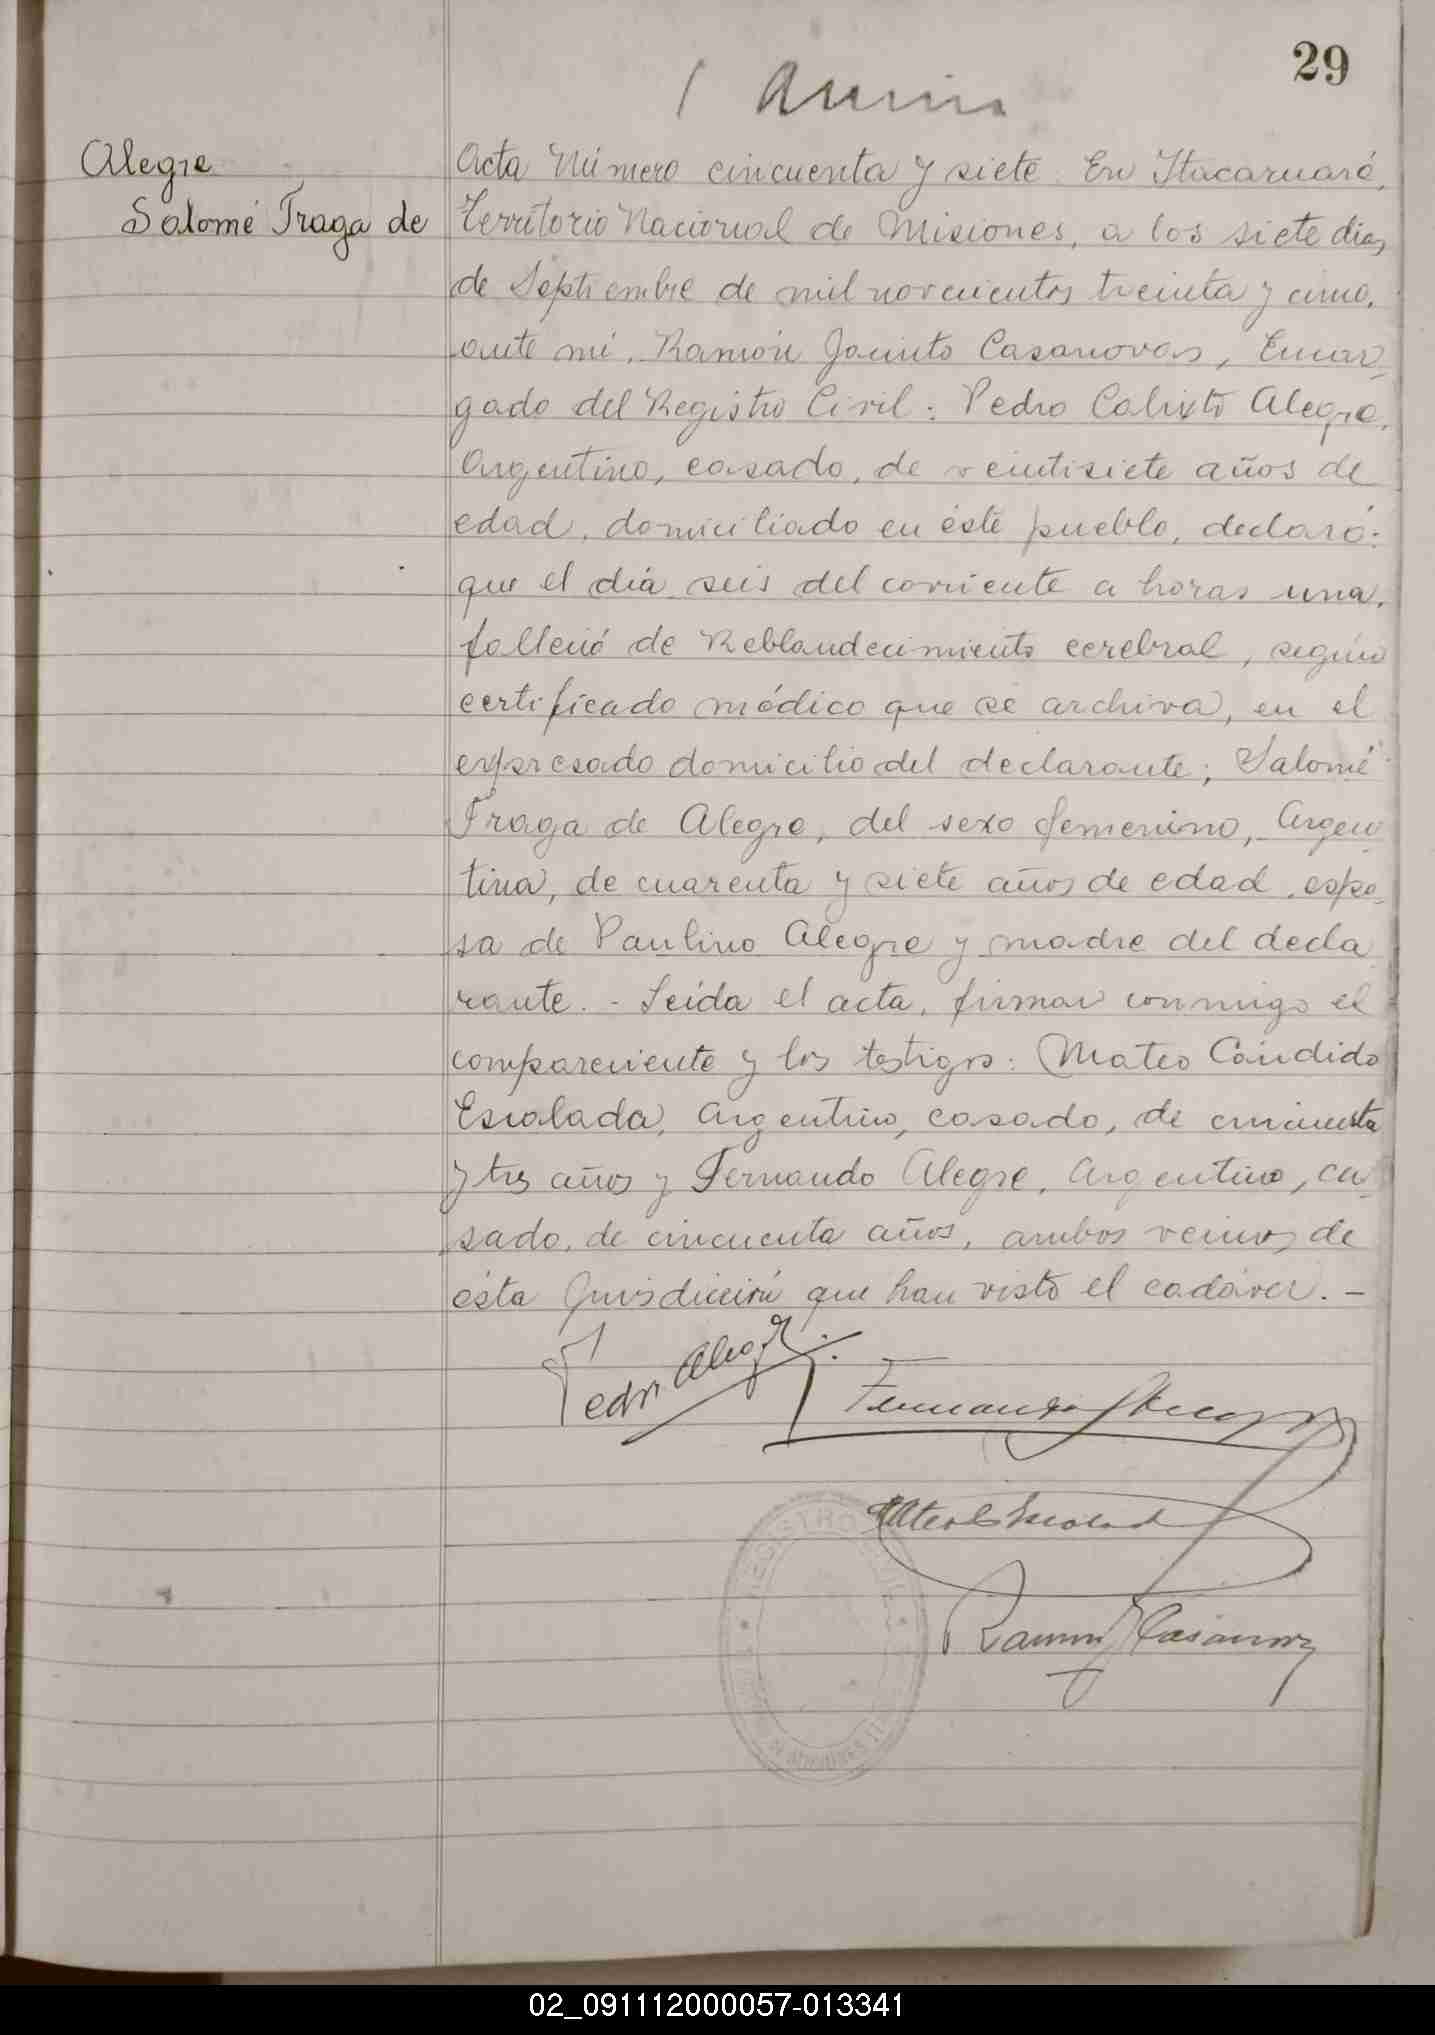 29
Alegre
Salomé Fraga de
Acta Número cincuenta y siete. En Itacaruaré,
Territorio Nacional de Misiones, a los siete dias
de Septiembre de mil novecientos treinta y cinco,
ante mí, Ramón Jacinto Casanovas, Encar-
gado del Registro Civil: Pedro Calixto Alegre,
Argentino, casado, de veintisiete años de
edad, domiciliado en éste pueblo, declaró:
que el día seis del corriente a horas una,
falleció de Reblandecimiento cerebral, según
certificado médico que se archiva, en el
expresado domicilio del declarante; Salomé
Fraga de Alegre, del sexo femenino, Argen-
tina, de cuarenta y siete años de edad, espo-
sa de Paulino Alegre y madre del decla
rante. - Leída el acta, firman conmigo el
compareciente y los testigos: Mateo Cándido
Escalada, Argentino, casado, de cincuenta
y tres años y Fernando Alegre, Argentino, ca-
sado, de cincuenta años, ambos vecinos de
ésta Jurisdicción que han visto el cadáver. -
Pedro Alegre
Fernando Alegre
Mateo C Escalada
Ramón J Casanovas
REGISTRO CIVIL
02_091112000057-013341